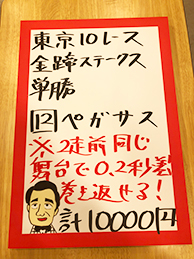 東京10レース
金蹄ステークス
単勝
12 ペガサス
※2走前同じ
舞台で0.2秒差
巻き返せる!
計10000円